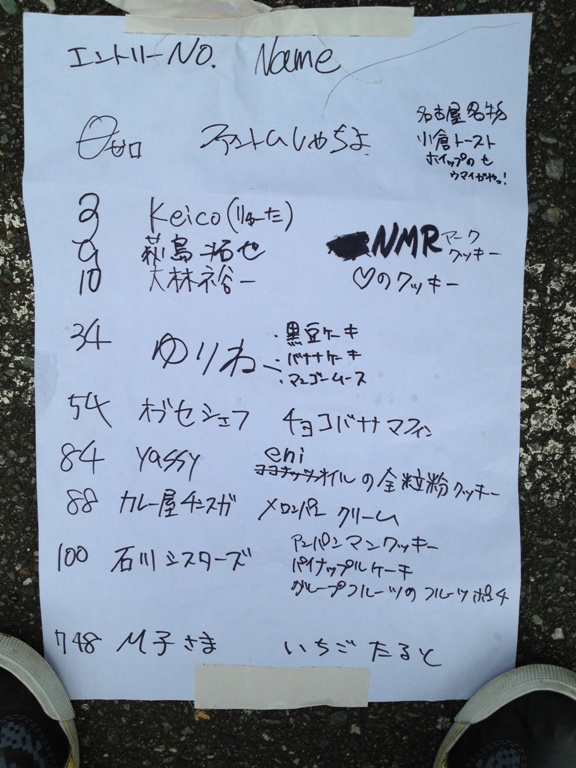 エントリーNO. Name
0ゼロ ファントムしゃちょ
名古屋名物
小倉トースト
ホイップのせ
ウマイがやっ!
3 Keico(りゅーた)
9 萩島拓也 NMRマーク
クッキー
10 大林裕一 ♡のクッキー
34 ゆりねー
・黒豆ケーキ
・バナナケーキ
・マンゴームース
54 オブセシェフ チョコバナナマフィン
84 yassy eni
ココナッツオイルの全粒粉クッキー
88 カレー屋チンスガ メロンパン クリーム
100 石川シスターズ アンパンマンクッキー
パイナップルケーキ
グループフルーツのフルーツポンチ
748 M子さま いちごたると